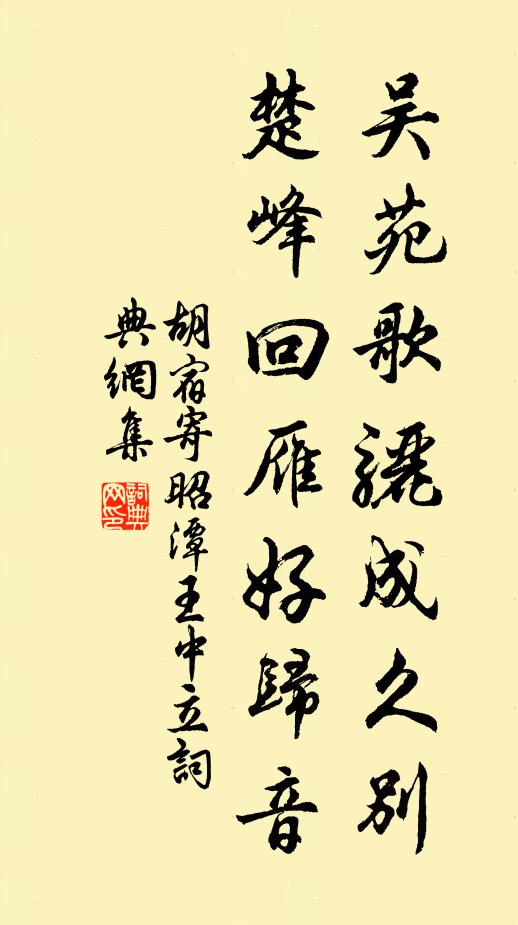 吴苑歌驪成久别
楚峰回雁好歸音
胡宿寄昭潭王中立詞
典網集
詞典
网印